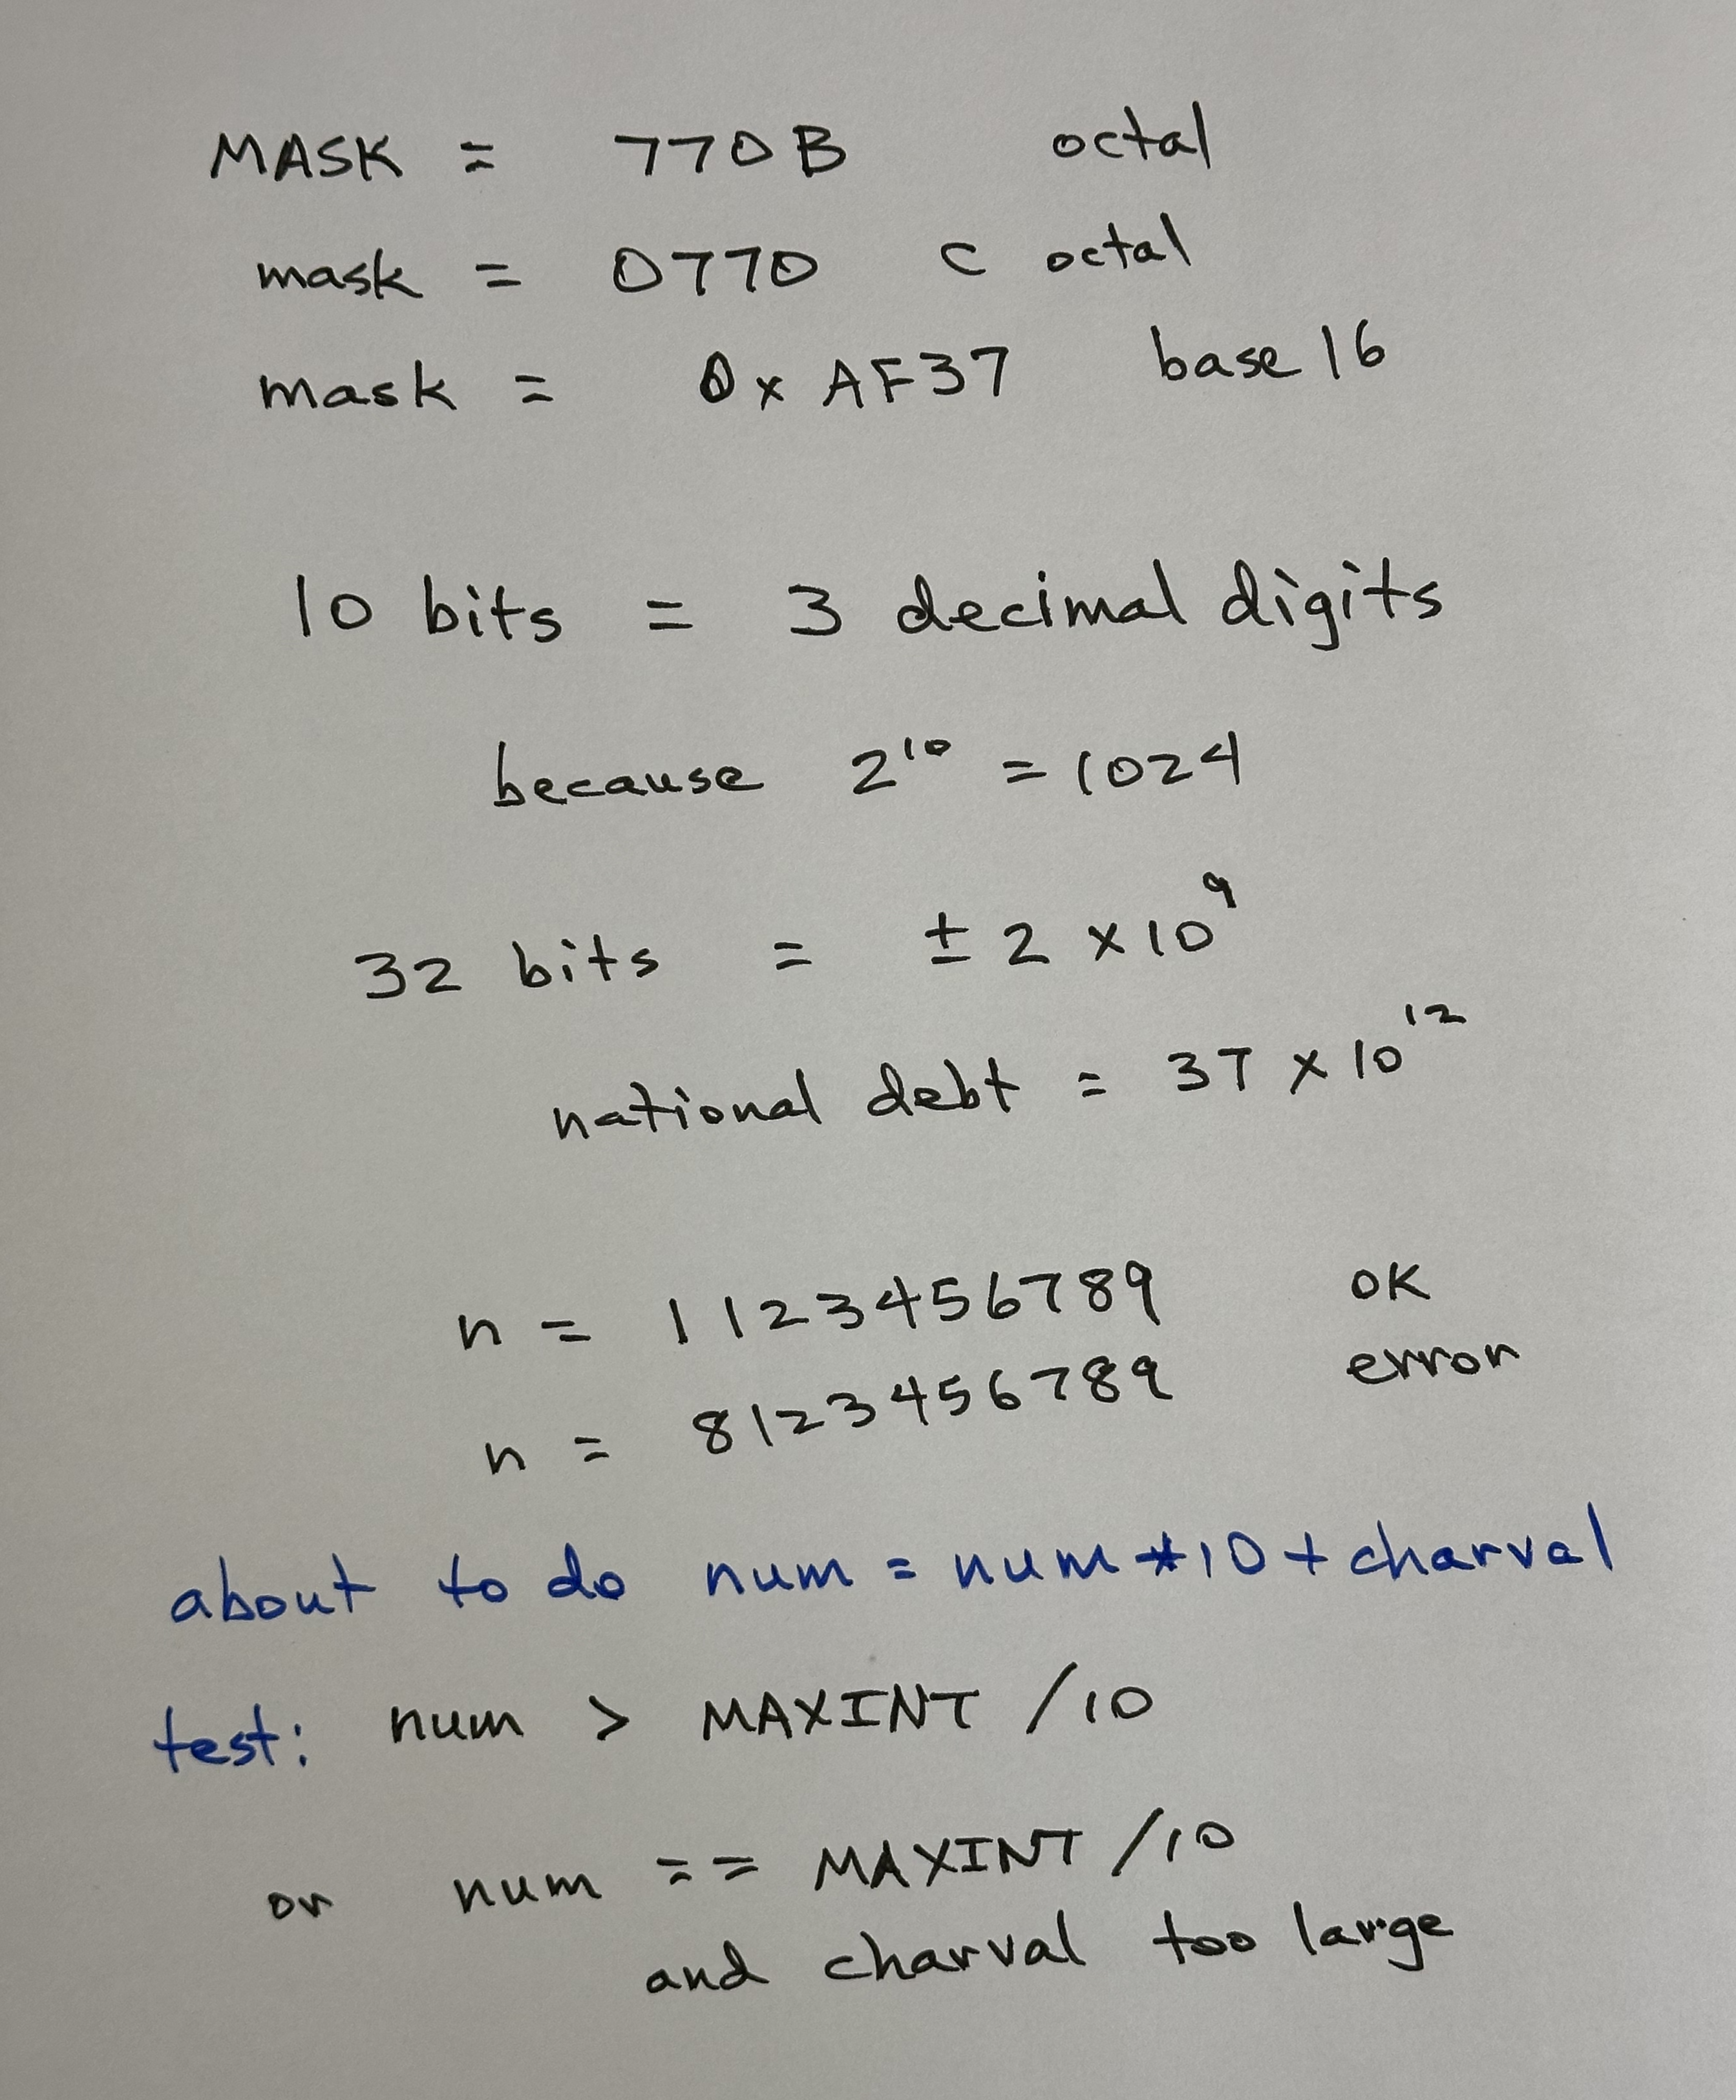 MASK = 770B octal
mask = 0770 C octal
mask = 0x AF37 base 16
10 bits = 3 decimal digits
because 2¹⁰ = 1024
32 bits = ± 2 x 10⁹
national debt = 37 x 10¹²
n = 1123456789 OK
n = 8123456789 error
about to do num = num * 10 + charval
test: num > MAXINT / 10
or num == MAXINT / 10
and charval too large